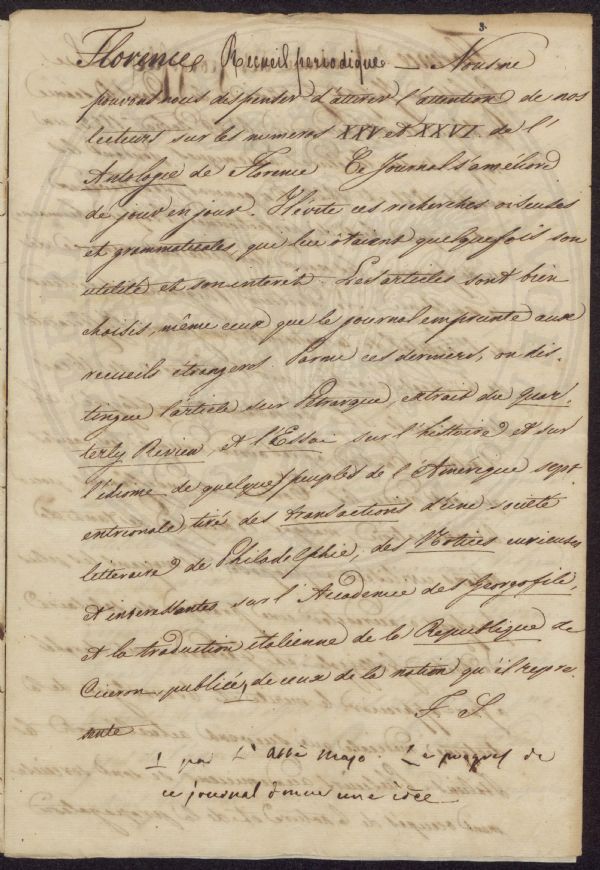 3.
Florence Recueil periodique — Nous ne
pouvons nous dispenser d'attirer l'attention de nos
lecteurs sur les numeros XXV et XXVI de l'
Antologie de Florence Ce Journal s'améliore
de jour en jour. Il évite ces recherches oiseuses
et grammaticales, qui lui ôtaient quelquefois son
utilité et son interêt. Les articles sont bien
choisis, même ceux que le journal emprunte aux
recueils étrangers. Parmi ces derniers, on dis-
tingue l'article sur Petrarque, extrait du Quar-
terly Review, et l'Essai sur l'histoire et sur
l'idiome de quelques peuples de l'Amerique sept-
entrionale tiré des transactions d'une société
litteraire de Philadelphie, des Notices curieuses
et interessantes sur l'Academie des Georgofili,
et la traduction italienne de la Republique de
Ciceron, publiée de ceux de la nation qu'il repre-
sente F. S.
par L'abbé Majo. Le progrés de
ce journal donne une idée